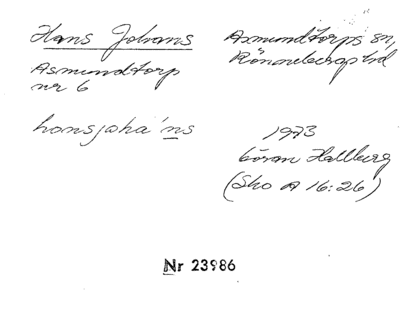 Hans Johans
Asmundtorps sn,
Rönnebergs hd
Asmundtorp
nr 6
hansjoha´ns
1973
Göran Hallberg
(Sko A 16:26)
Nr 23986